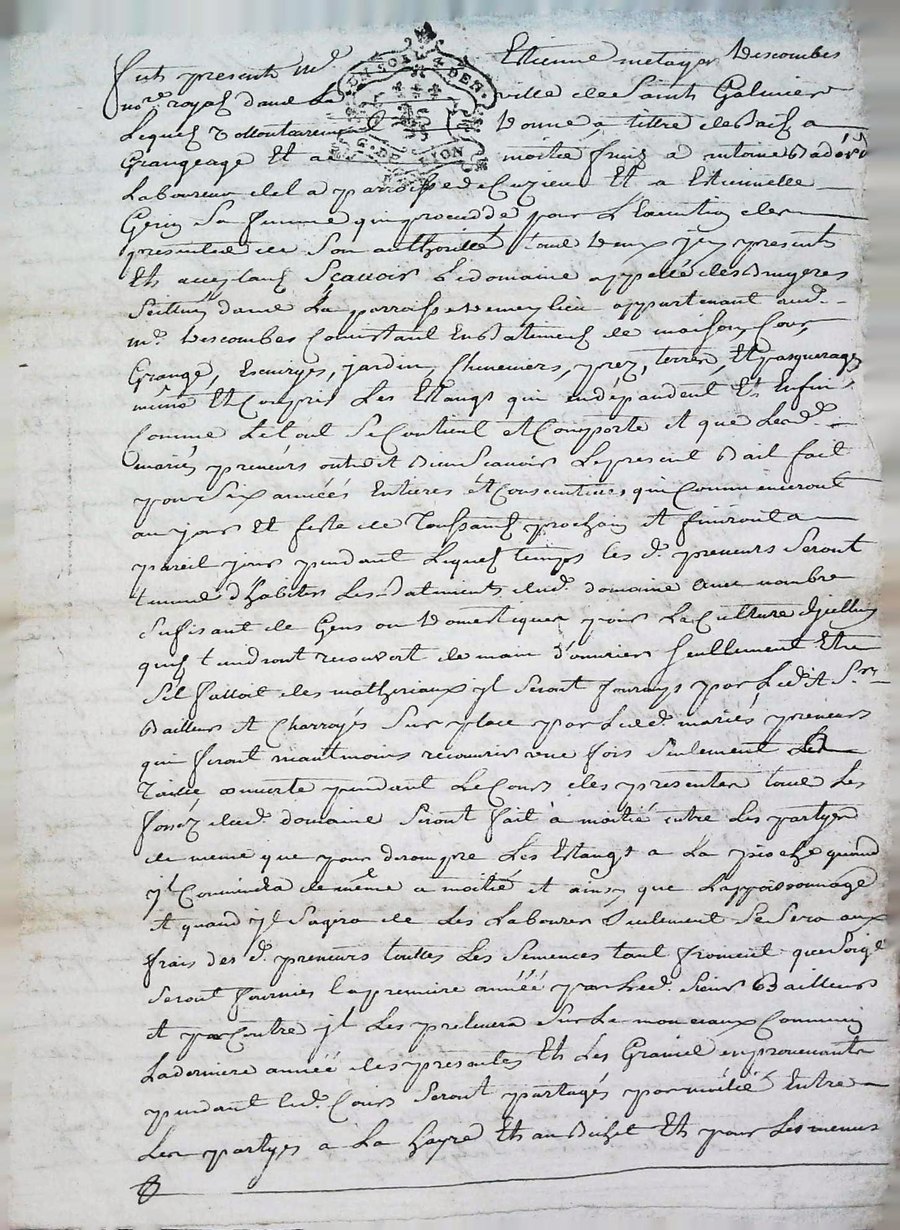 fut present Me Etienne metayer Descombes
nore royal dans la ville de Saint Galmier
Lequel Vollontairement donne a tittre de Bail a
Grangeage Et a moitié fruis a antoine Badóit
Laboureur de la parroisse de Cuzieu Et a Etiennette
Gerin Sa femme qui procedde pour L'Exécution des
presentes de Son authorité tous deux jcy presents
Et acceptant Scavoir Le domaine appellé des Bruyeres
Scittué dans La parroisse de meylieu appartenant aud.
me. Descombes Consistant En Batiment de maison, Cour,
Grange, Ecuryes, jardin, Cheneviers, prez, terres, Et pasquerages
même Et Compris Les Etangs qui en dépendent Et Enfin
Comme Le tout Se Contient et Comporte et que Lesd.
mariés preneurs ont dit Bien Scavoir Le present Bail fait
pour Six années Entieres et Consecutives qui Commenceront
au jour Et feste de Toussaint prochain et finiront a
pareil jour pendant Lequel temps les d. preneurs Seront
tenus d'habiter Les Batiments dud. domaine avec nombre
Sufisant de Gens ou Domestiques pour La Culture d'jcelluy
quils tiendront recouvert de main d'ouvrier Seullement Et
Sil falloit des matheriaux jl Seront fournys par Ledit Sr.
Bailleur et Charroyés Sur place par Lesd. mariés preneurs
qui feront neantmoins recouvrir une fois Seulement Le
Taille ouverte pendant Le Cours des presentes tous Les
fossés dud. domaine Seront fait à moitié entre Les partyes
de meme que pour derompre Les Etangs a La pioche quand
jl Conviendra de même a moitié et ainsy que L'appoissonnage
et quand jl Sagira de Les Labourer Seulement Se Sera aux
frais des d. preneurs touttes Les Semences tant froment que Soigle
Seront fournies la premiere année par Led. Sieur Bailleur
et par Contre jl Les prelevera Sur Le monceaux Commun
La derniere année des presentes Et Les Grains en provenants
pendant led. Cours Seront partagés par moitié Entre
Les partyes a La Gayre Et au Bichet Et pour Les menus